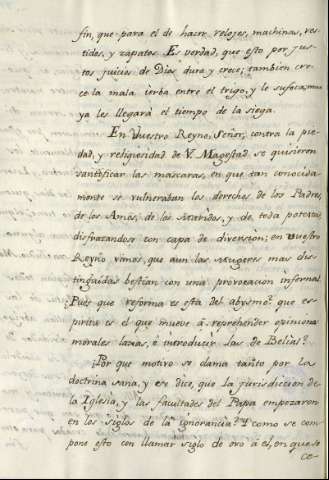 fin, que para el de hacer reloxes, machinas, ves-
tidos, y zapatos. Es verdad, que esto por jus-
tos juicios de Dios dura y crece; tambien cre-
ce la mala ierba entre el trigo, y le sufoca; mas
ya les llegará el tiempo de la siega.
En Vuestro Reyno, Señor, contra la pie-
dad, y religiosidad de V. Magestad se quisieron
santificar las máscaras, en que tan conocida-
mente se vulneraban los derechos de los Padres,
de los Amos, de los Maridos, y de toda potestad,
disfrazandose con capa de diversion; en vuestro
Reyno vimos, que aun las Mugeres mas dis-
tinguidas bestian con una provocacion infernal.
Pues que reforma es esta del abysmo? que es-
piritu es el que mueve á reprehender opiniones
morales laxas, é introducir las de Belial?
Por que motivo se clama tanto por la
doctrina sana, y se dice, que la jurisdiccion de
la Iglesia, y las facultades del Papa empezaron
en los siglos de la ignorancia? Y como se com-
pone esto con llamar siglo de oro á el, en que se
ce-